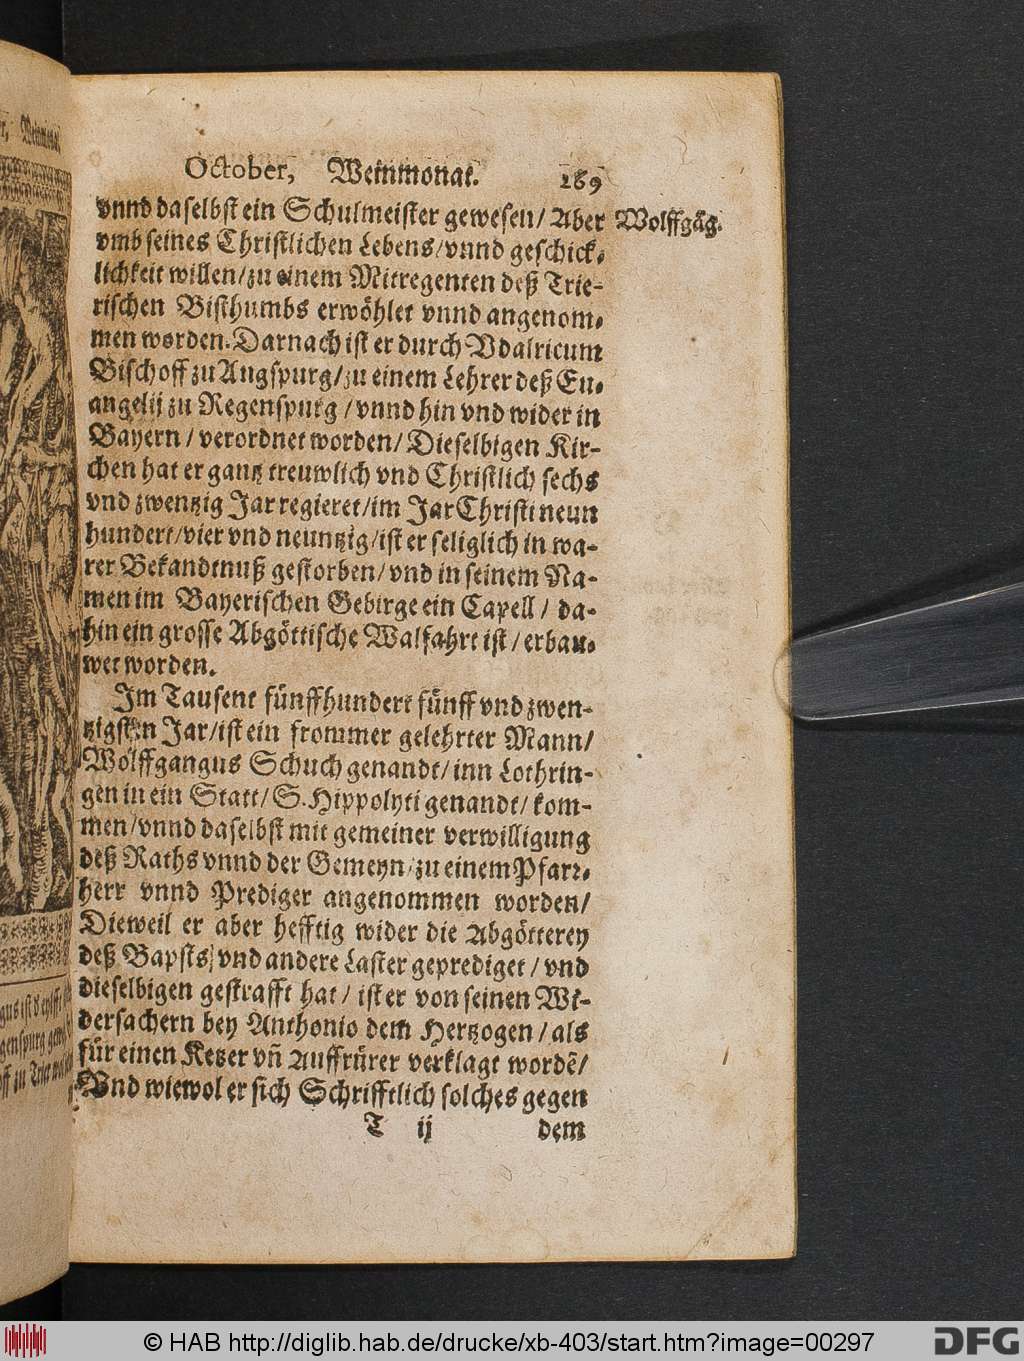 October, Weinmonat. 289
vnnd daselbst ein Schulmeister gewesen/ Aber Wolffgãg.
vmb seines Christlichen Lebens/ vnnd geschick-
lichkeit willen/ zu einem Mitregenten deß Trie-
rischen Bisthumbs erwöhlet vnnd angenom-
men worden. Darnach ist er durch Vdalricum
Bischoff zu Augspurg/ zu einem Lehrer deß Eu-
angelij zu Regenspurg / vnnd hin vnd wider in
Bayern / verordnet worden/ Dieselbigen Kir-
chen hat er gantz treuwlich vnd Christlich sechs
vnd zwentzig Jar regieret/ im Jar Christi neun
hundert/ vier vnd neuntzig/ ist er seliglich in wa-
rer Bekandtnuß gestorben/ vnd in seinem Na-
men im Bayerischen Gebirge ein Capell / da-
hin ein grosse Abgöttische Walfahrt ist/ erbau-
wet worden.
Im Tausent fünffhundert fünff vnd zwen-
tzigsten Jar/ ist ein frommer gelehrter Mann/
Wolffgangus Schuch genandt/ inn Lothrin-
gen in ein Statt/ S. Hippolyti genandt/ kom-
men/ vnnd daselbst mit gemeiner verwilligung
deß Raths vnnd der Gemeyn/ zu einem Pfarr-
herr vnnd Prediger angenommen worden/
Dieweil er aber hefftig wider die Abgötterey
deß Bapsts/ vnd andere Laster geprediget / vnd
dieselbigen gestrafft hat / ist er von seinen Wi-
dersachern bey Anthonio dem Hertzogen / als
für einen Ketzer vñ Auffrürer verklagt wordẽ/
Vnd wiewol er sich Schrifftlich solches gegen
T ij dem
© HAB http://diglib.hab.de/drucke/xb-403/start.htm?image=00297
DFG